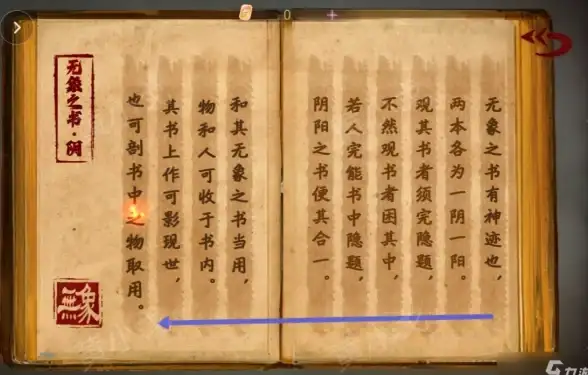 无象之书有神迹也，
两本各为一阴一阳。
观其书者须完隐题，
不然观书者困其中，
若人完能书中隐题，
阴阳之书便其合一。
和其无象之书当用，
物和人可收于书内。
其书上作可影现世，
也可剖书中之物取用。
无象之书·阴
無象
0